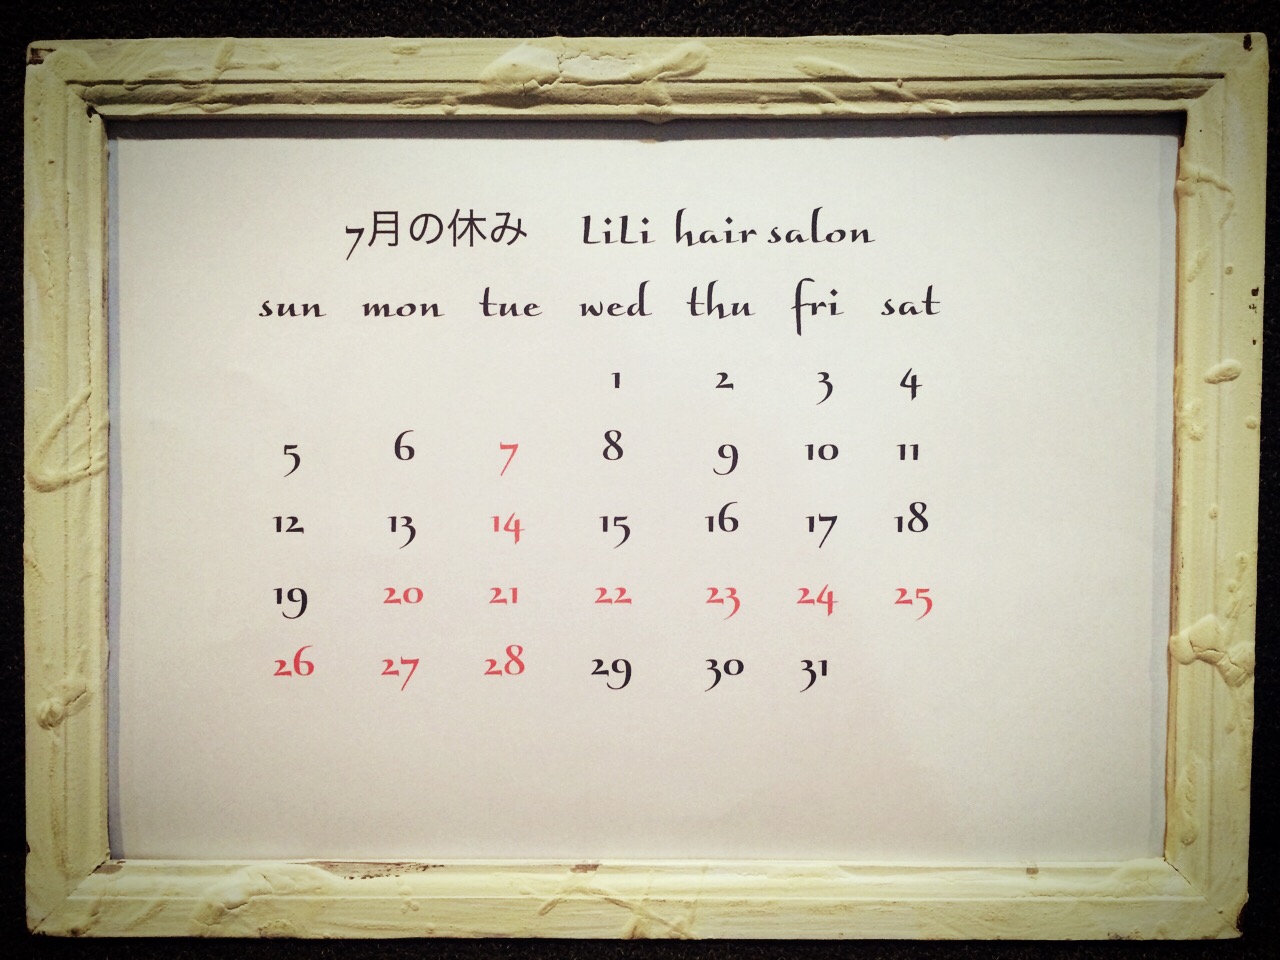 7月の休み LiLi hair salon
sun mon tue wed thu fri sat
1 2 3 4
5 6 7 8 9 10 11
12 13 14 15 16 17 18
19 20 21 22 23 24 25
26 27 28 29 30 31